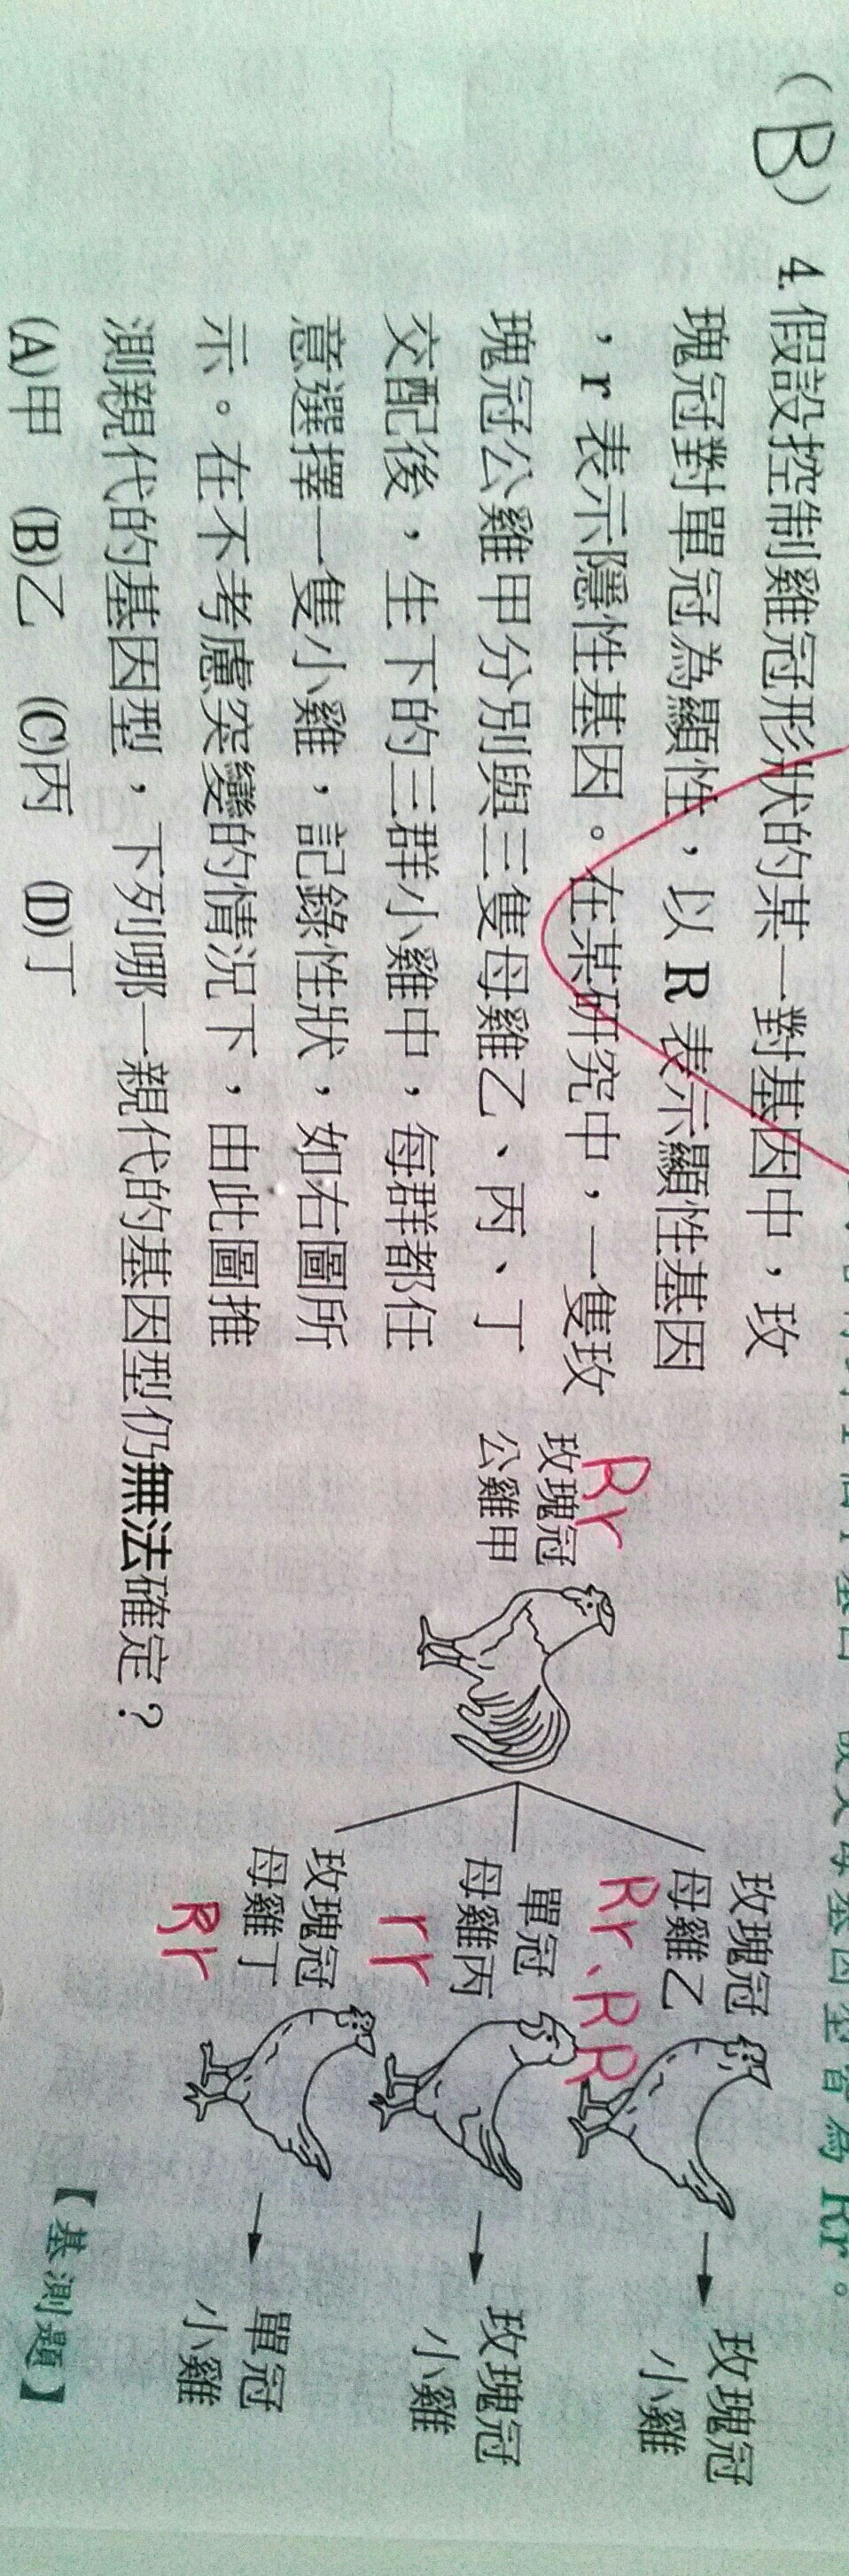 (B) 4. 假設控制雞冠形狀的某一對基因中，玫
瑰冠對單冠為顯性，以 R 表示顯性基因
，r 表示隱性基因。在某研究中，一隻玫
瑰冠公雞甲分別與三隻母雞乙、丙、丁
交配後，生下的三群小雞中，每群都任
意選擇一隻小雞，記錄性狀，如右圖所
示。在不考慮突變的情況下，由此圖推
測親代的基因型，下列哪一親代的基因型仍無法確定？
(A)甲 (B)乙 (C)丙 (D)丁
Rr
玫瑰冠
公雞甲
玫瑰冠
母雞乙
Rr、RR
玫瑰冠
小雞
單冠
母雞丙
rr
玫瑰冠
小雞
玫瑰冠
母雞丁
Rr
單冠
小雞
【基測題】